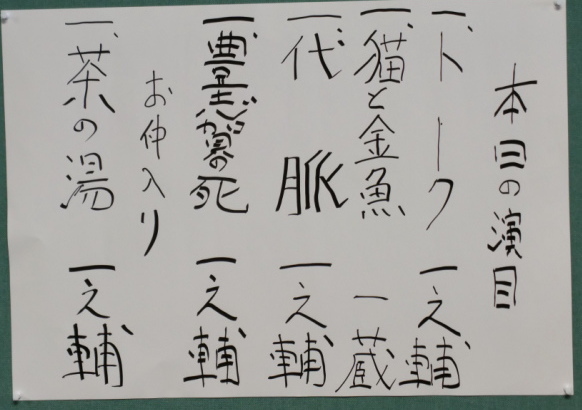 本日の演目
一、トーク 一之輔
一、猫と金魚 一蔵
一、代脈 一之輔
一、豊志賀の死 一之輔
お仲入り
一、茶の湯 一之輔